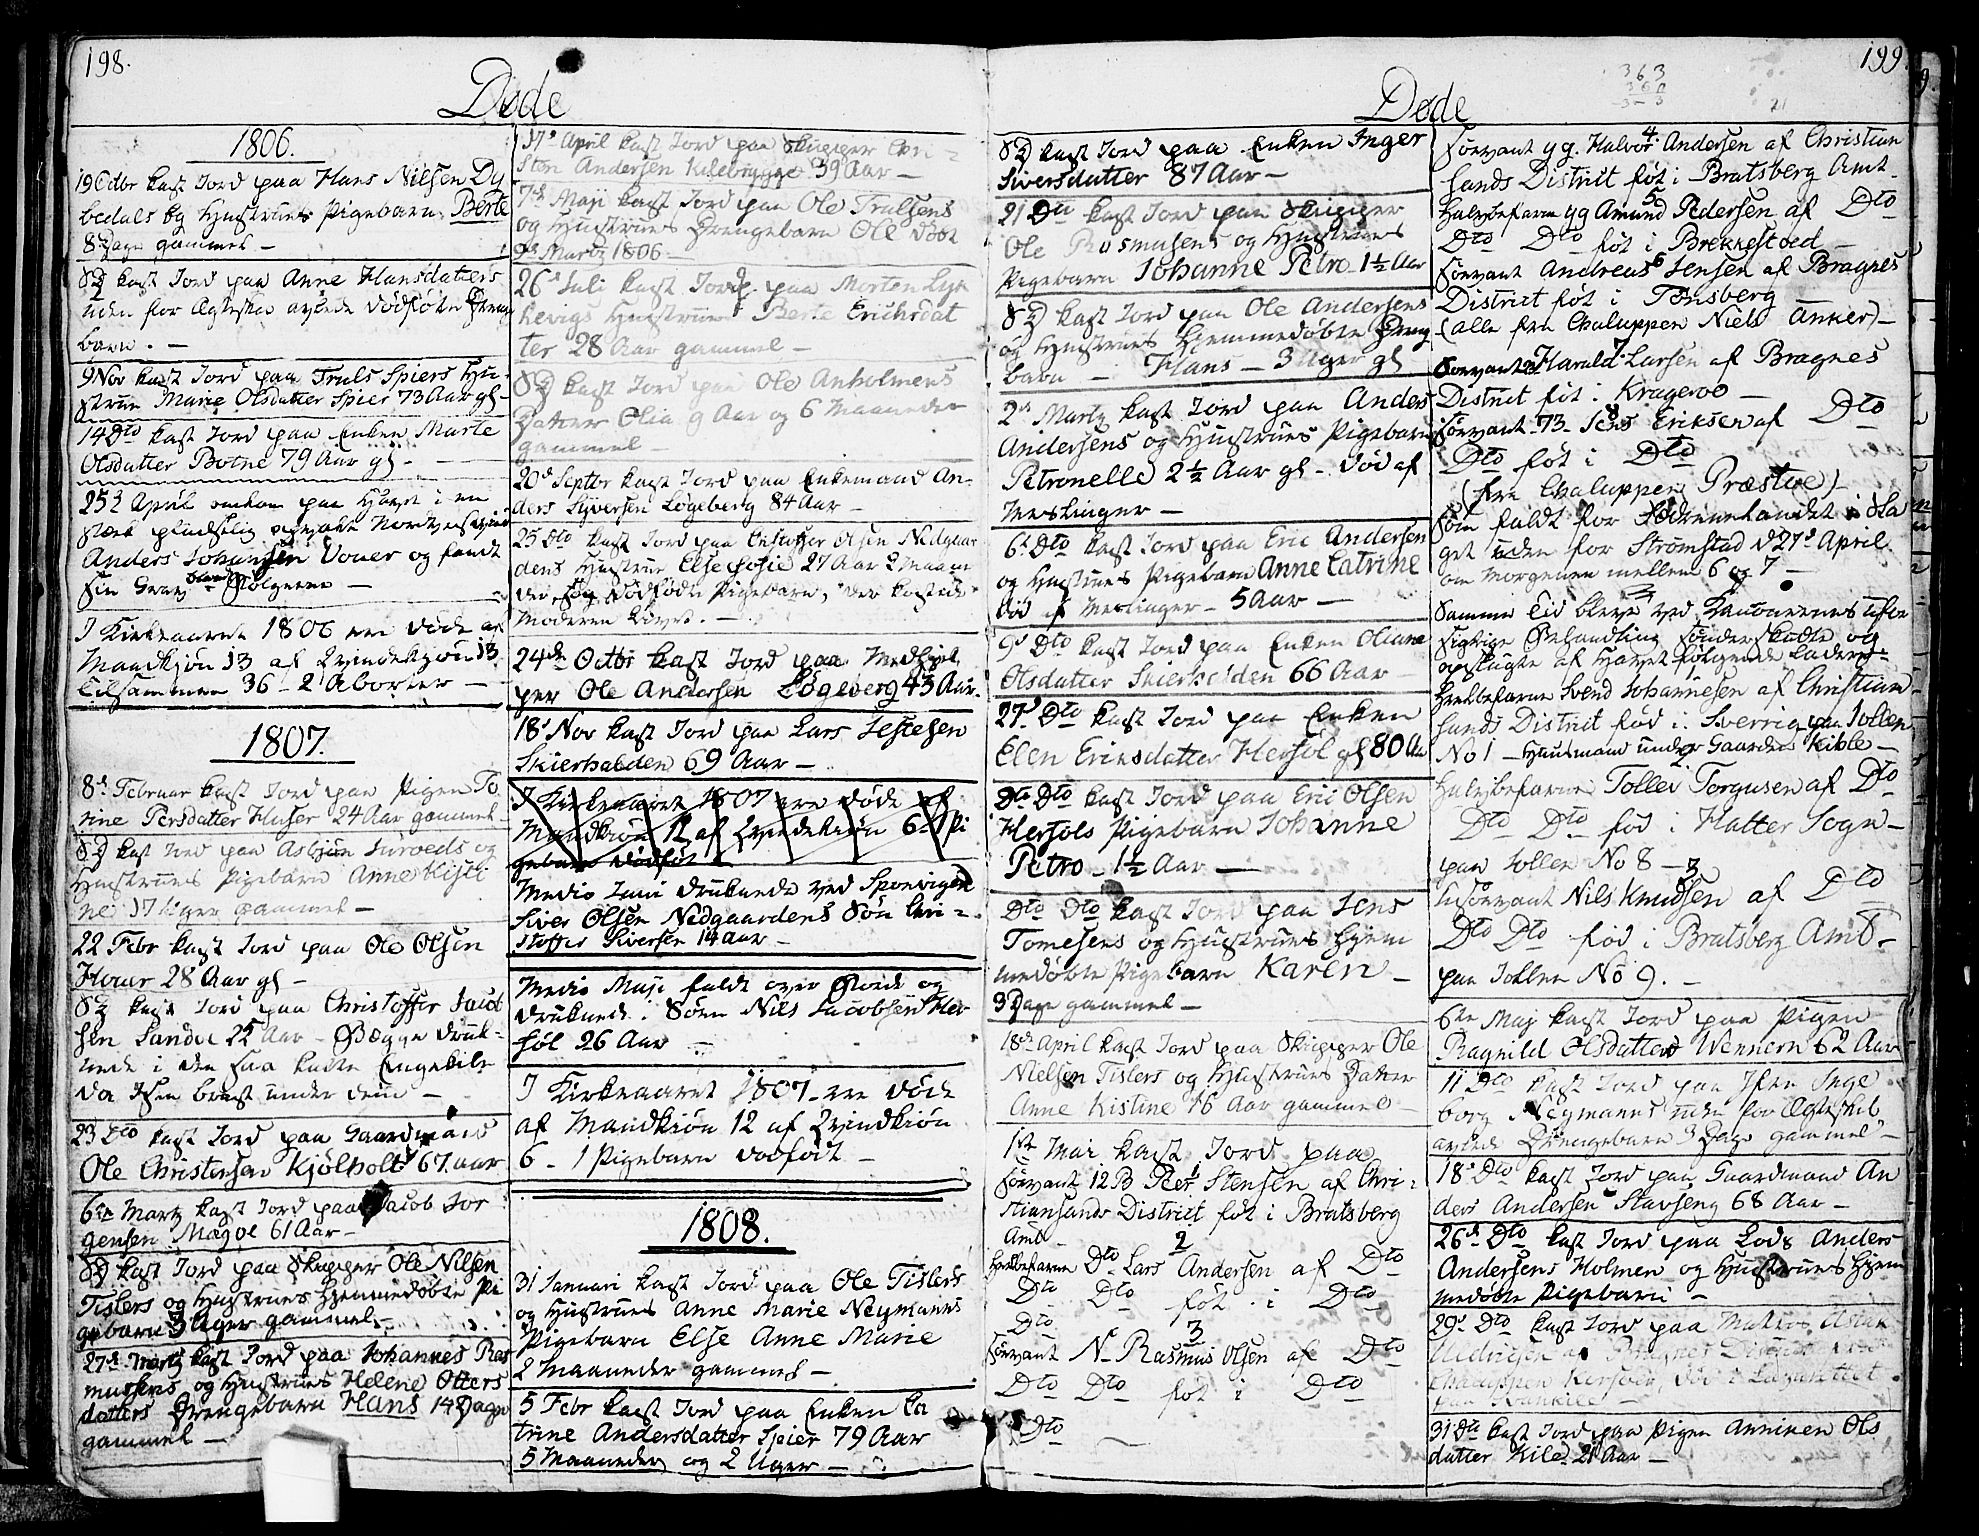 198.
Døde
1806.
19 Octbr kast Jord paa Hans Nilsen Dy
bedals og Hustrues Pigebarn Berte
8 Dage gammel –
SD kast Jord paa Anne Hansdatters
uden for Ægteskab avlede dødfødte Drenge
barn. –
9 Nov kast Jord paa Truls Spiers Hu-
strue Marie Olsdatter Spier 73 Aar gl –
14 Dto kast Jord paa Enken Marte
Olsdatter Botne 79 Aar gl. –
25d April omkom paa Havet i en
stærk pludselig Norden
Anders Johansen Vouer og fandt
sin Grav Bølgerne –
I Kirkeaaret 1806 ere døde af
Mandkjøn 13 af Qvindekjøn 13
tilsammen 36 – 2 Aborter –
1807.
8d Februar kast Jord paa Pigen To
rine Persdatter Huser 24 Aar gammel
SD kast Jord paa Asbjørn og
Hustrues Pigebarn Anne Kisti
ne 17 Uger gammel –
22 Febr kast Jord paa Ole Olsen
28 Aar gl –
SD kast Jord paa Christoffer
sen 22 Aar – Begge druk-
nede i den saa kaldte Engekile
da Isen brast under dem –
23 Dto kast Jord paa Gaardmand
Ole Christensen Kjølholt 67 aar
6te Martz kast Jord paa Jacob Jør
gensen Magøe 61 Aar –
SD kast Jord paa Skipper Ole Nilsen
Tislers og Hustrues Hjemmedøbte Pi
gebarn 3 Uger gammel. –
27d Martz kast Jord paa Johannes Ras
mussens og Hustrues Helene Otters
datters Drengebarn Hans 14 Dage
gammel –
17d April kast Jord paa Skipper Chri-
sten Andersen Kilebrygge 39 Aar –
7d Maji kast Jord paa Ole Trulsens
og Hustrues Drengebarn Ole død
9d Martz 1806 –
26d Juli kast Jord paa Morten Lyk
kevigs Hustrue Berte Erichsdat
ter 28 Aar gammel –
SD kast Jord paa Ole Anholmens
Datter Olia 9 Aar og 6 Maaneder
gammel –
20d Septbr kast Jord paa Enkemand An-
ders Syversen Løgeberg 84 Aar –
25 Dto kast Jord paa Christoffer Olsen Nedgaar
dens Hustrue Else Sofie 27 Aar 2 Maane
der, og dødfødte Pigebarn, der kostede
Moderen Livet. –
24de Octbr kast Jord paa Medhjel
per Ole Andersen Løgeberg 43 Aar.
18d Nov kast Jord paa Lars Jestesen
Skierhalden 69 Aar –
I Kirkeaaret 1807 ere døde af
Mandkiøn 12 af Qvindekiøn 6 – 1 Pi
gebarn dødfødt –
Medio Juni druknede ved Sponvigen
Siver Olsen Nedgaardens Søn Chri-
stoffer Siversen 14 Aar –
Medio Maji faldt over Borde og
druknede i Søen Nils Jacobsen Her
føl 26 Aar –
I Kirkeaaret 1807 ere døde
af Mandkiøn 12 af Qvindkiøn
6 – 1 Pigebarn dødfødt –
1808.
31 Januari kast Jord paa Ole Tislers
og Hustrues Anne Marie Neymanns
Pigebarn Else Anne Marie
2 Maaneder gammel –
5 Febr kast Jord paa Enken Ca
trine Andersdatter Spier 79 Aar
5 Maaneder og 2 Uger –
199
363
360
3-3
21
Døde
SD kast Jord paa Enken Inger
Siversdatter 87 Aar –
21 Dto kast Jord paa Skipper
Ole Rosmusens og Hustrues
Pigebarn Johanne Petro 1½ Aar
SD kast Jord paa Ole Andersens
og Hustrues Hjemmedøbte Dreng
barn – Hans – 3 Uger gl
2d Martz kast Jord paa Anders
Andersens og Hustrues Pigebarn
Petronelle 2½ Aar gl – død af
Meslinger –
6d Dto kast Jord paa Eric Andersen
og Hustrues Pigebarn Anne Catrine
død af Meslinger – 5 Aar –
9d Dto kast Jord paa Enken Oliane
Olsdatter Skierhalden 66 Aar
27d Dto kast Jord paa Enken
Elen Eriksdatter Herføl gl 80 Aar
Dto Dto kast Jord paa Eric Olsen
Herføls Pigebarn Johanne
Petro – 1½ Aar –
Dto Dto kast Jord paa Jens
Tomesens og Hustrues Hjem
medøbte Pigebarn Karen –
3 Dage gammel –
18d April kast Jord paa Skipper Ole
Nielsen Tislers og Hustrues Datter
Anne Kistine 16 Aar gammel –
1st Mai kast Jord paa
1
Søevant 12 B Per Stensen af Chri-
stiansands District føt i Bratsberg
Amt –
2
Helbefaren Do Lars Andersen af Dto
Dto Dto føt i Dto
Dto
3
Søevant N– Rasmus Olsen af Dto
Dto Dto føt i Dto
Dto –
4
Søevant yg. Halvor Andersen af Christian
sands District føt i Bratsberg Amt –
5
Halvbefaren yg Amund Pedersen af Dto
Dto Dto føt i Brekkestoed –
6
Søevant Andreas Jensen af Bragnes
District føt i Tønsberg
(alle fra Chaluppen Niels Anker) –
7
Søevant Harald Larsen af Bragnes
District føt i Krageroe –
8
Søevant 73 – Jens Eriksen af Dto
Dto føt i Dto
(fra Chaluppen Præstøe) –
som faldt for Fædrenelandet i Sla
get uden for Strømstad d 27d April
om Morgenen mellem 6 og 7 –
Samme Tid bleve ved Kanonernes ufor
sigtige Behandling sønderskudte og
opslugte af Havet følgende Ladere:
Heelbefaren Svend Johannesen af Christian
sands District fød i Sverrig paa Jollen
No 1 – Huusmand under Gaarden Kible –
2
Halvbefaren Tollei Torgusen af Dto
Dto Dto fød i Hatter Sogn –
paa Jollen No 8 –
3
Søevant Nils Knudsen af Dto
Dto Dto fød i Bratsberg Amt –
paa Jollen No 9. –
6te Maj kast Jord paa Pigen
Ragnild Olsdatter Wennern 62 Aar
11 Dto kast Jord paa Inge
borg Neymanns uden for Ægteskab
avlede Drengebarn 3 Dage gammel –
18d Dto kast Jord paa Gaardmand An
ders Andersen Stavseng 68 Aar –
26d Dto kast Jord paa Lods Anders
Andersens Holmen og Hustrues Hjem
medøbte Pigebarn –
29d Dto kast Jord paa Matros
af Bragnes District
Chaluppen død i Lazarettet
31 Dto kast Jord paa Pigen Anniken Ols
datter Kile 21 Aar –